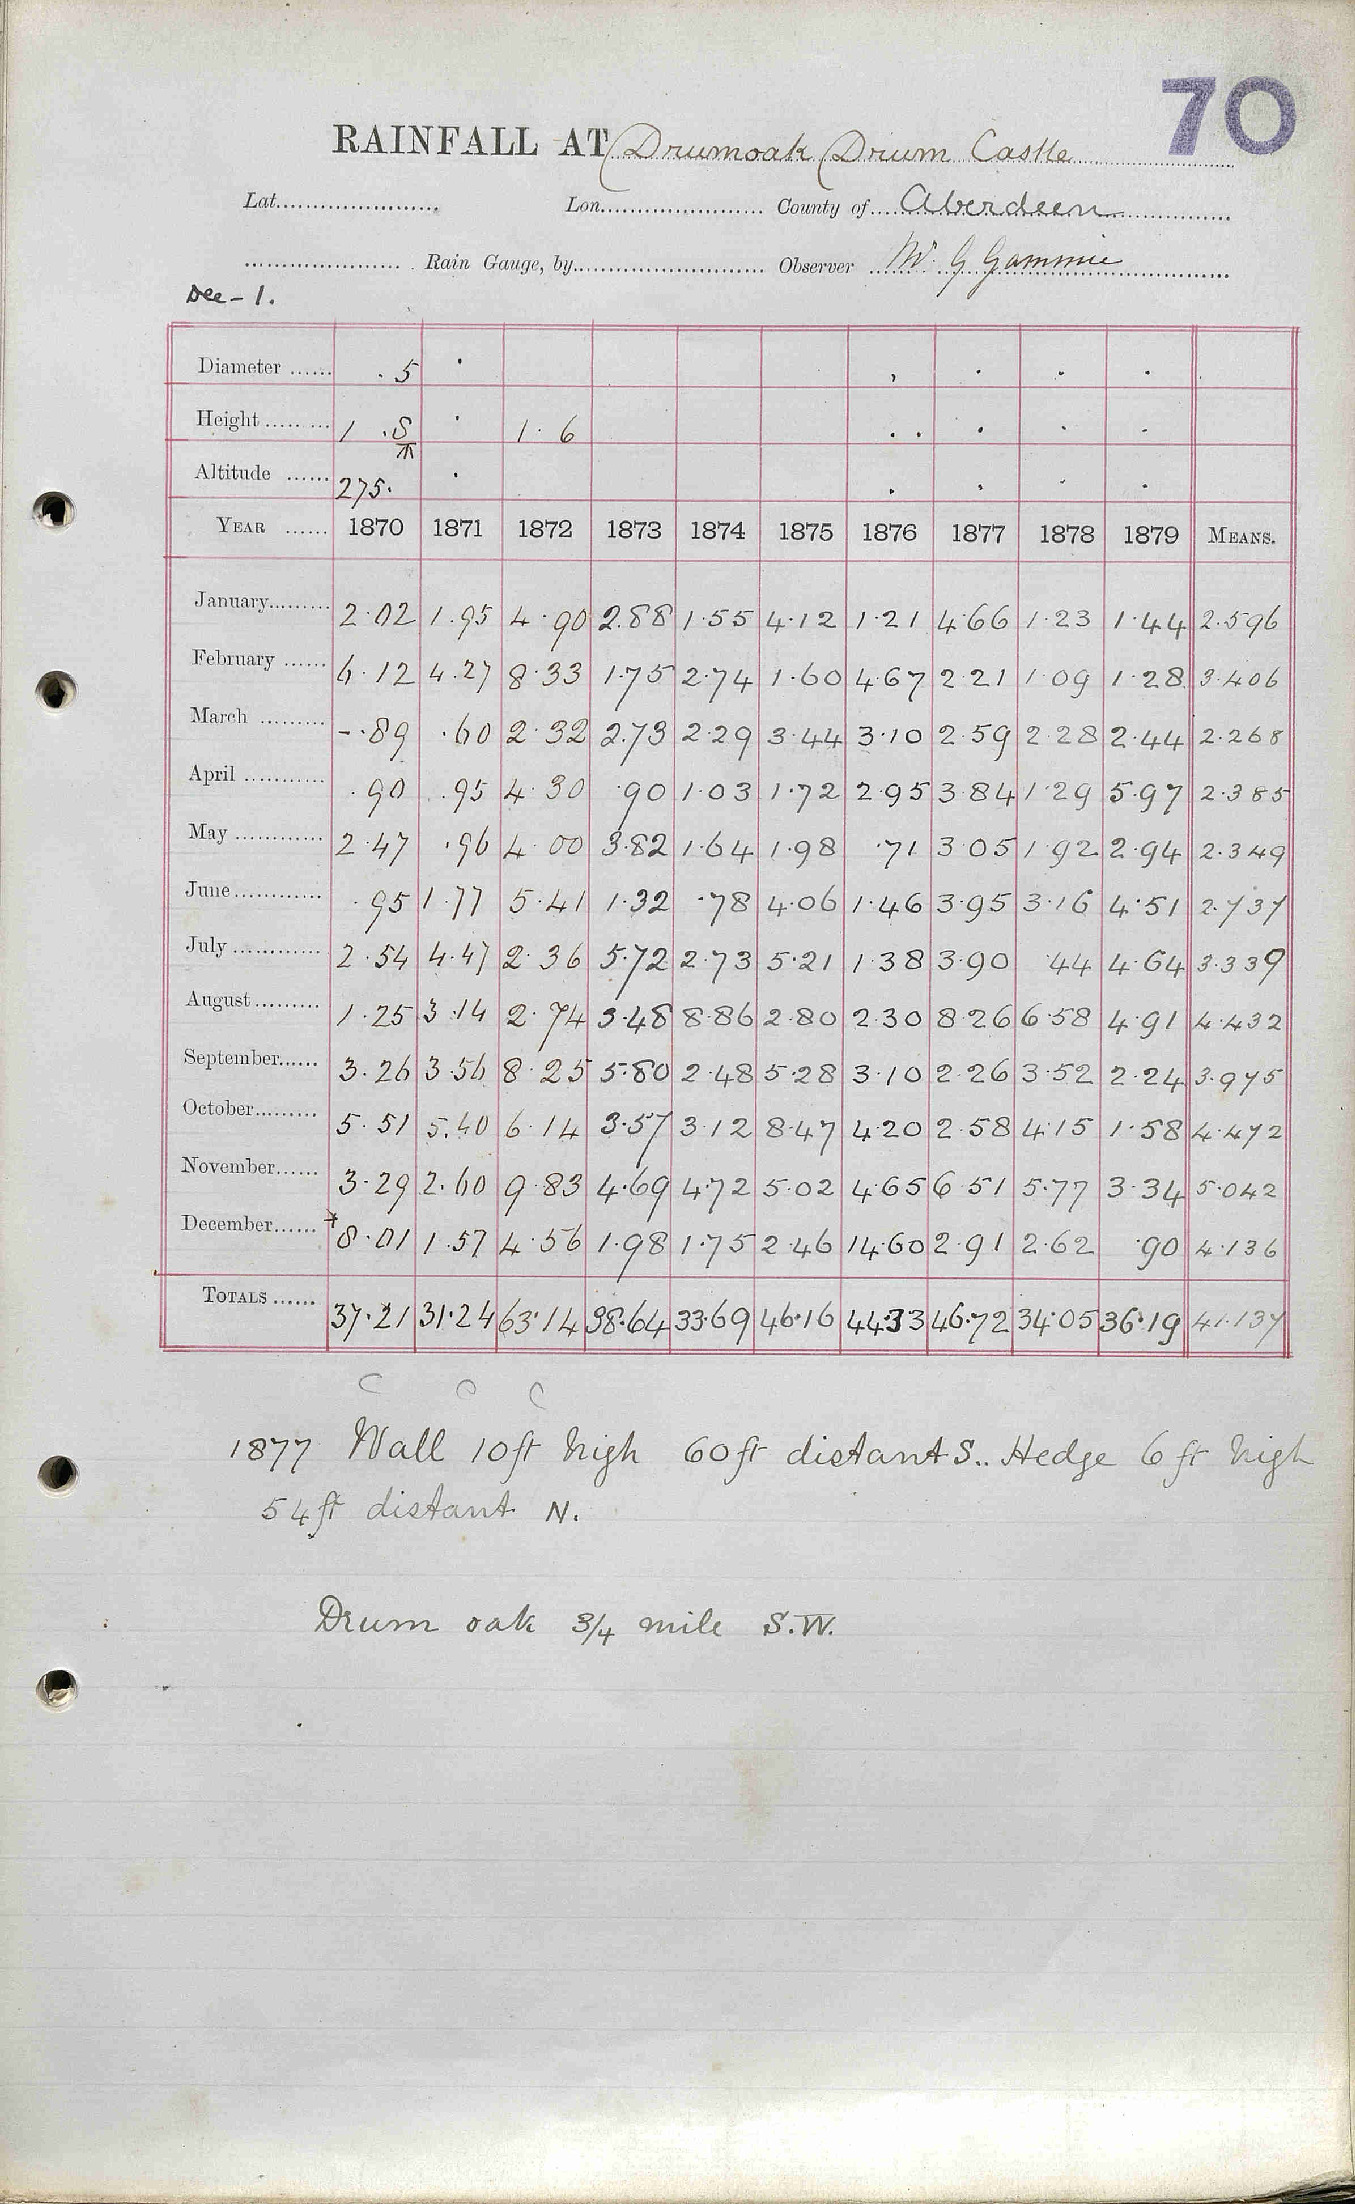 70
RAINFALL AT (Drumoak (Drum Castle
Lat. Lon. County of Aberdeen
Rain Gauge, by Observer W. G Gammie
Dee - 1.
Diameter . 5
Height 1 .8 1. 6
Altitude 275.
YEAR 1870 1871 1872 1873 1874 1875 1876 1877 1878 1879 MEANS.
January 2.02 1.95 4.90 2.88 1.55 4.12 1.21 4.66 1.23 1.44 2.596
February 6.12 4.27 8.33 1.75 2.74 1.60 4.67 2.21 1.09 1.28 3.406
March -.89 .60 2.32 2.73 2.29 3.44 3.10 2.59 2.28 2.44 2.268
April .90 .95 4.30 .90 1.03 1.72 2.95 3.84 1.29 5.97 2.385
May 2.47 .96 4.00 3.82 1.64 1.98 .71 3.05 1.92 2.94 2.349
June .95 1.77 5.41 1.32 .78 4.06 1.46 3.95 3.16 4.51 2.737
July 2.54 4.47 2.36 5.72 2.73 5.21 1.38 3.90 .44 4.64 3.339
August 1.25 3.14 2.74 3.48 8.86 2.80 2.30 8.26 6.58 4.91 4.432
September 3.26 3.56 8.25 5.80 2.48 5.28 3.10 2.26 3.52 2.24 3.975
October 5.51 5.40 6.14 3.57 3.12 8.47 4.20 2.58 4.15 1.58 4.472
November 3.29 2.60 9.83 4.69 4.72 5.02 4.65 6.51 5.77 3.34 5.042
December 8.01 1.57 4.56 1.98 1.75 2.46 14.60 2.91 2.62 .90 4.136
TOTALS 37.21 31.24 63.14 38.64 33.69 46.16 44.33 46.72 34.05 36.19 41.137
C C C
1877 Wall 10ft high 60ft distant S.. Hedge 6 ft high
54ft distant N.
Drum oak 3/4 mile S.W.